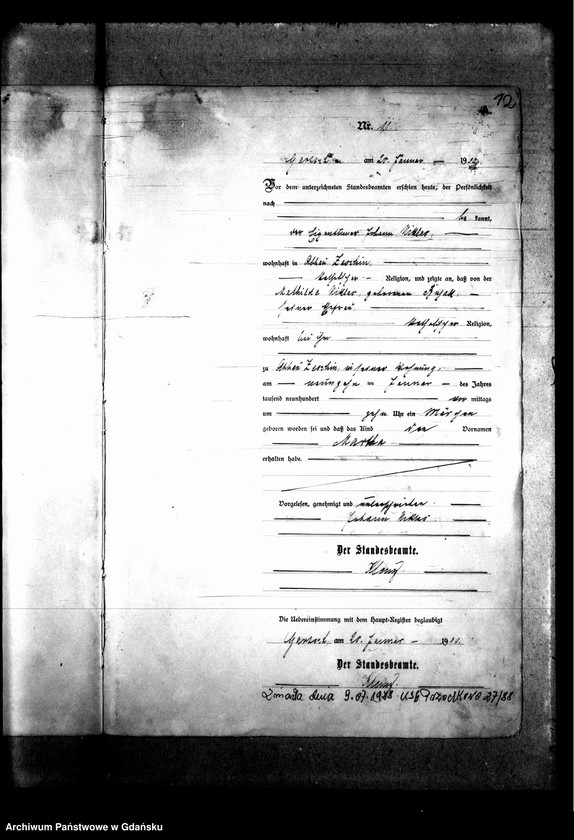 12
Nr. 11
am 20. Januar 19
Vor dem unterzeichneten Standesbeamten erschien heute, der Persönlichkeit
nach
be kannt,
der Eigenthümer Johann
wohnhaft in
Religion, und zeigte an, daß von der
Mathilde geborenen
seiner Ehefrau
Religion,
wohnhaft bei ihm
zu in seiner Wohnung
am neunzehn ten Januar des Jahres
tausend neunhundert vor mittags
um zehn Uhr ein Mädchen
geboren worden sei und daß das Kind den Vornamen
Martha
erhalten habe.
Vorgelesen, genehmigt und unterschrieben
Johann
Der Standesbeamte.
Die Uebereinstimmung mit dem Haupt-Register beglaubigt
am 20. Januar 19
Der Standesbeamte.
Zmarła dnia 9.07.1988 USC Przodkowo 27/88
Archiwum Państwowe w Gdańsku